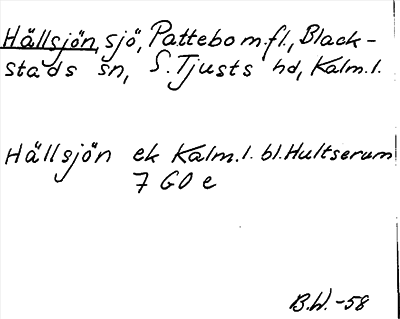 Hällsjön, sjö, Pattebo m.fl., Black-
stads sn, S. Tjusts hd, Kalm.l.
Hällsjön ek Kalm.l. bl. Hultserum
7 GO e
B.W.-58